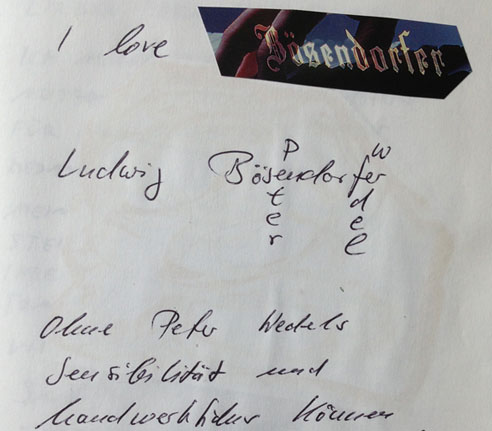 I love Bösendorfer
P W
Ludwig Bösendorfer
t d
e e
r l
Ohne Peter Wedels
Sensibilität und
handwerkliches Können